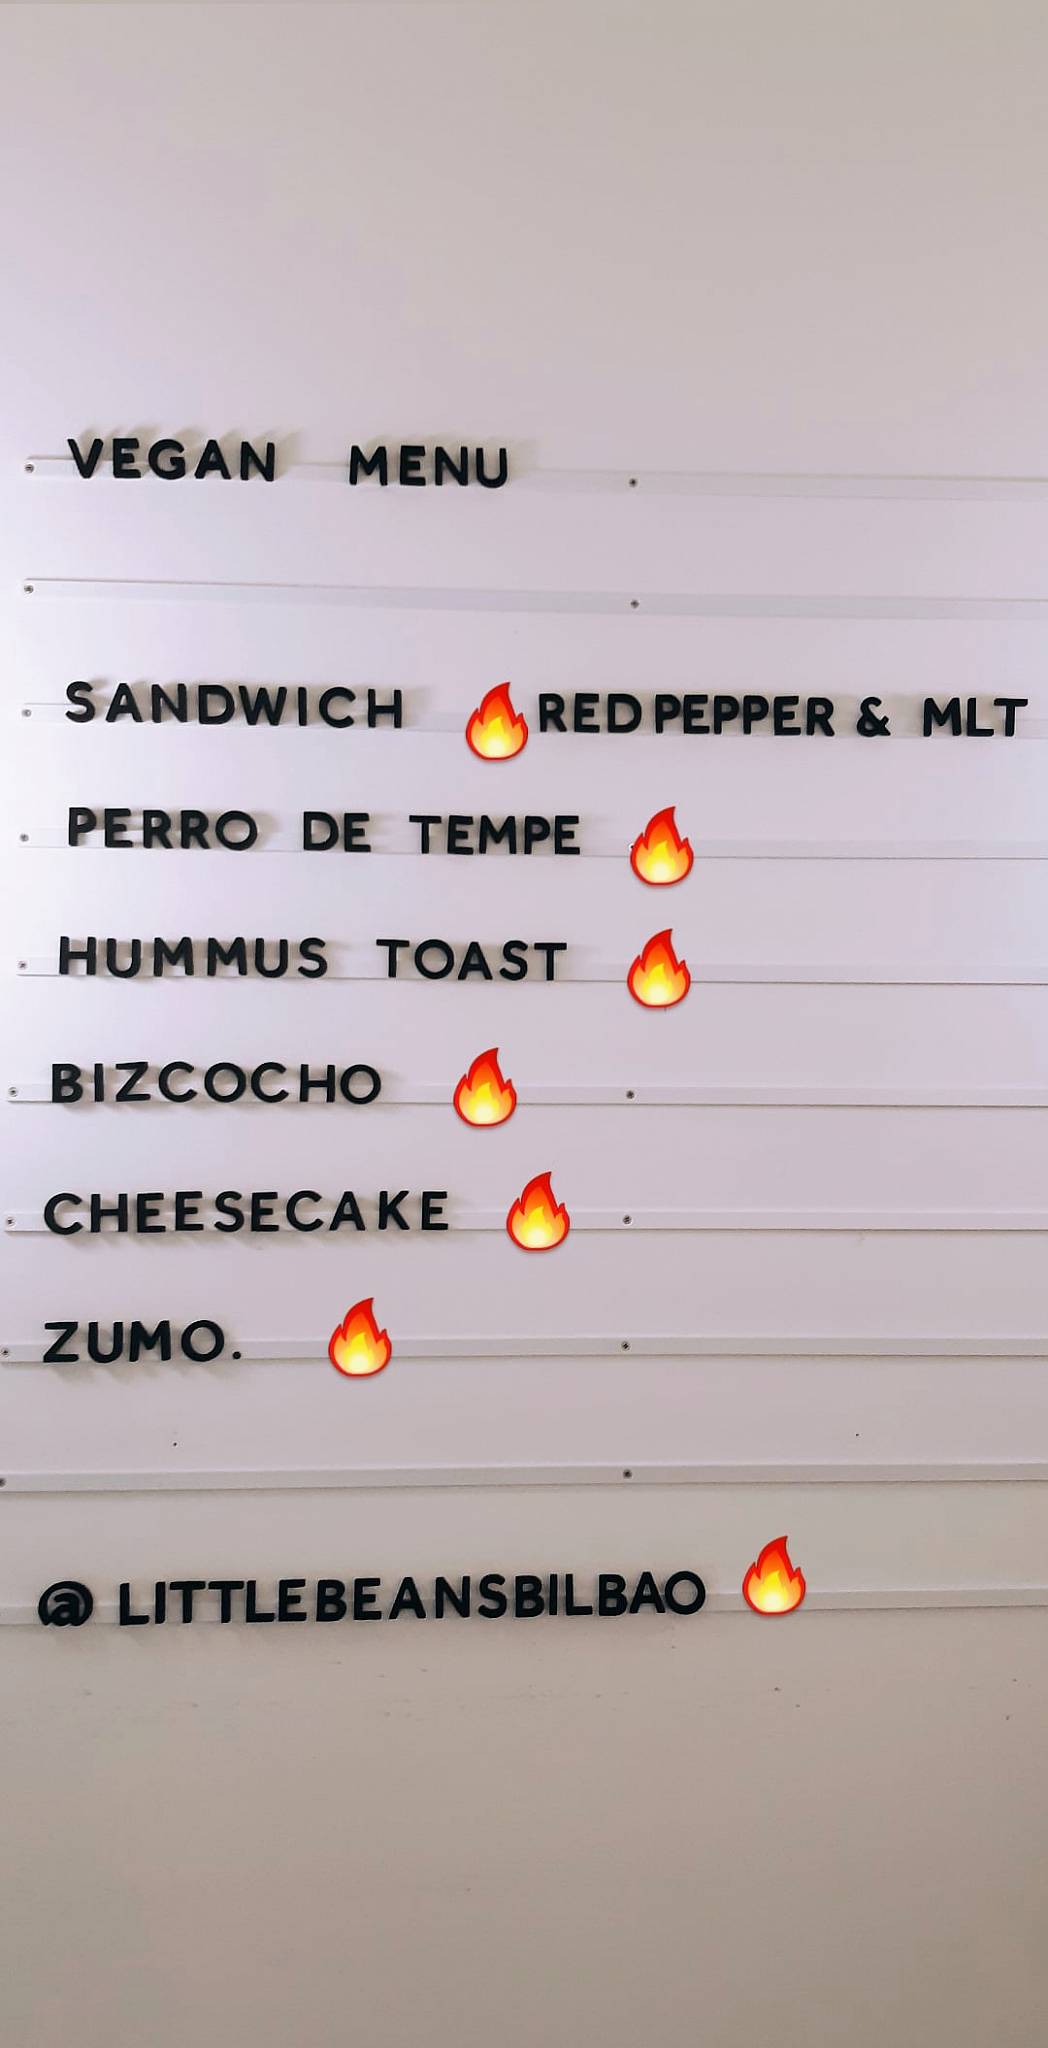 VEGAN MENU
SANDWICH 🔥 RED PEPPER & MLT
PERRO DE TEMPE 🔥
HUMMUS TOAST 🔥
BIZCOCHO 🔥
CHEESECAKE 🔥
ZUMO. 🔥
@LITTLEBEANSBILBAO 🔥